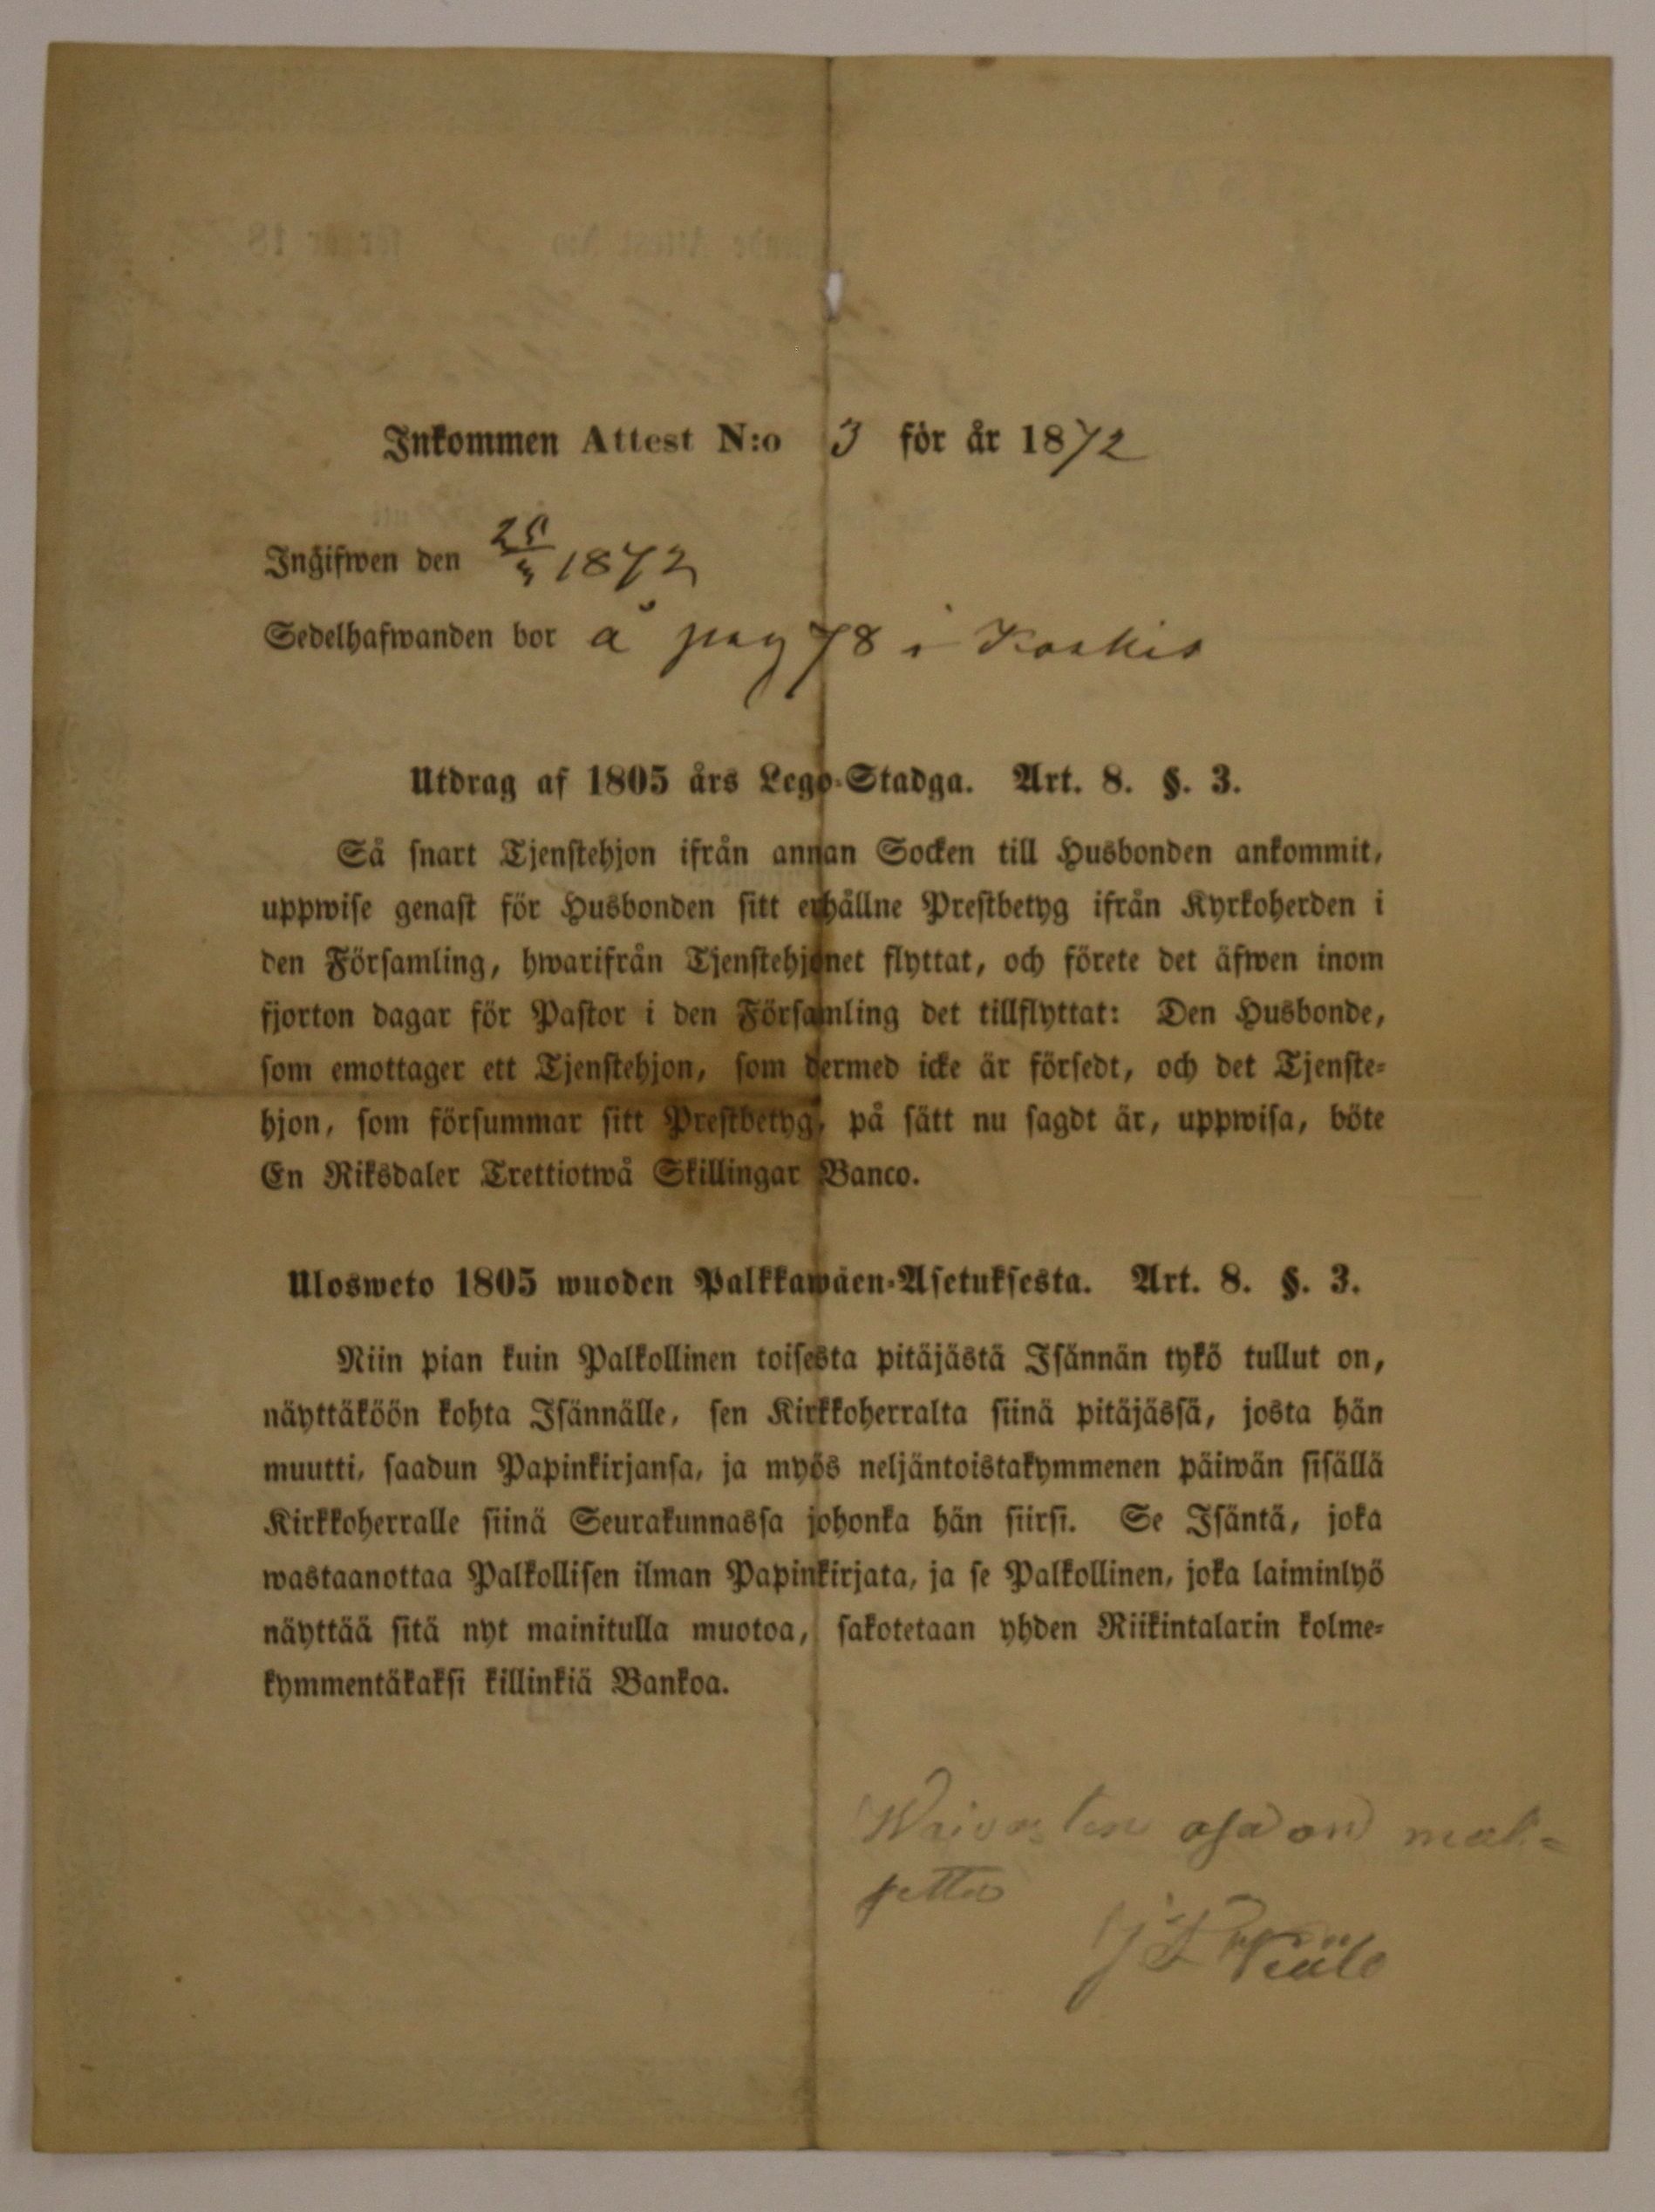 Inkommen Attest N:o 3 för år 1872
Ingifwen den 25/3 1872
Sedelhafwanden bor å pag 78 i Koskis
Utdrag af 1805 års Lego-Stadga. Art. 8. §. 3.
Så snart Tjenstehjon ifrån annan Socken till Husbonden ankommit,
uppwise genast för Husbonden sitt erhållne Prestbetyg ifrån Kyrkoherden i
den Församling, hwarifrån Tjenstehjonet flyttat, och förete det äfwen inom
fjorton dagar för Pastor i den Församling det tillflyttat: Den Husbonde,
som emottager ett Tjenstehjon, som dermed icke är försedt, och det Tjenste-
hjon, som försummar sitt Prestbetyg, på sätt nu sagdt är, uppwisa, böte
En Riksdaler Trettiotwå Skillingar Banco.
Ulosweto 1805 wuoden Palkkawäen-Asetuksesta. Art. 8. §. 3.
Niin pian kuin Palkollinen toisesta pitäjästä Isännän tykö tullut on,
näyttäköön kohta Isännälle, sen Kirkkoherralta siinä pitäjässä, josta hän
muutti, saadun Papinkirjansa, ja myös neljäntoistakymmenen päiwän sisällä
Kirkkoherralle siinä Seurakunnassa johonka hän siirsi. Se Isäntä, joka
wastaanottaa Palkollisen ilman Papinkirjata, ja se Palkollinen, joka laiminlyö
näyttää sitä nyt mainitulla muotoa, sakotetaan yhden Riikintalarin kolme-
kymmentäkaksi killinkiä Bankoa.
Waivasten osa on mak-
settu